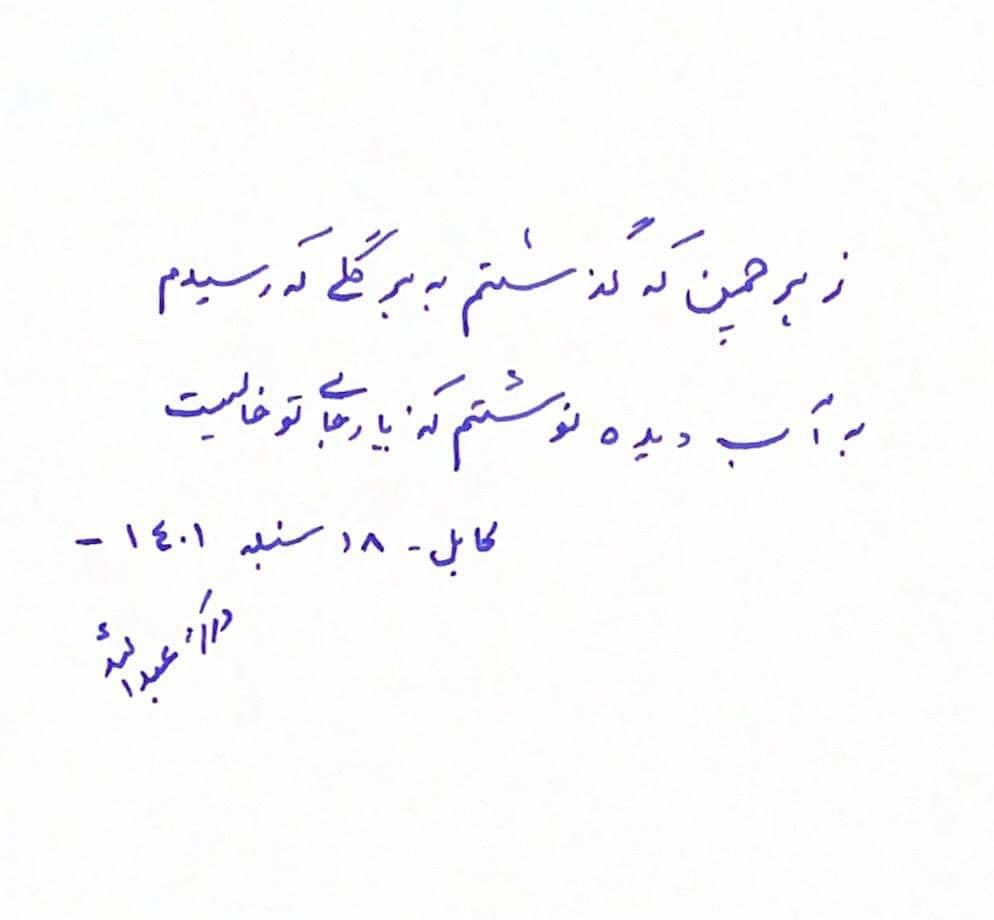 ز هر چمن که گذشتم به هر گلے که رسیدم
به آب دیده نوشتم که یار جای تو خالیست
کابل - ۱۸ سنبله ۱٤۰۱ -
عبدالله